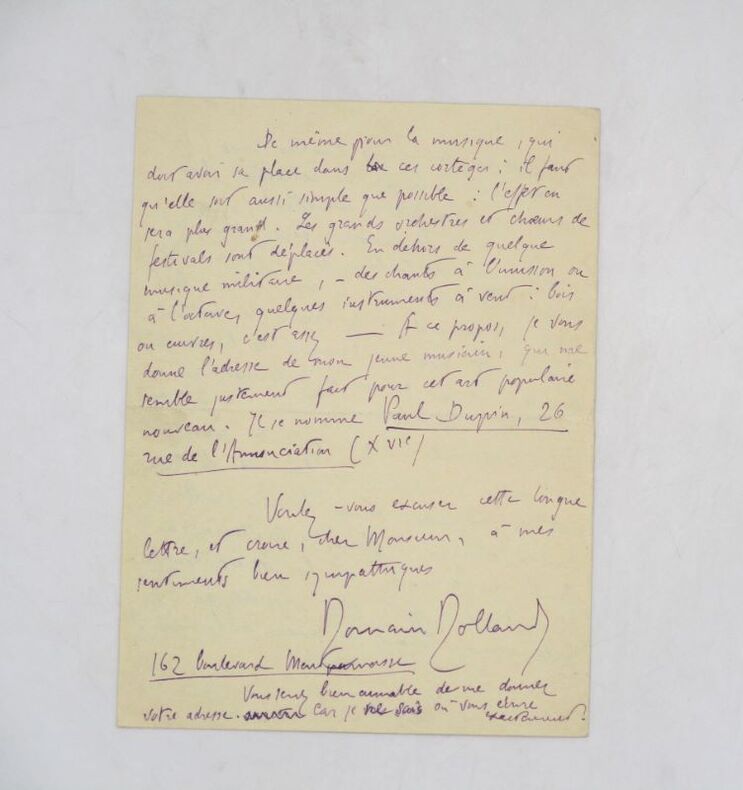 De même pour la musique, qui
doit avoir sa place dans ces cortèges : il faut
qu'elle soit aussi simple que possible : l'effet en
sera plus grand. Les grands orchestres et chœurs de
festivals sont déplacés. En dehors de quelque
musique militaire, – des chants à l'unisson ou
à l'octave, quelques instruments à vent : bois
ou cuivres, c'est assez — A ce propos, je vous
donne l'adresse de mon jeune musicien, qui me
semble justement fait pour cet art populaire
nouveau. Il se nomme Paul Dupin, 26
rue de l'Annonciation (XVIe)
Voulez-vous excuser cette longue
lettre, et croire, cher Monsieur, à mes
sentiments bien sympathiques
Romain Rolland
162 boulevard Montparnasse
Vous seriez bien aimable de me donner
votre adresse. car je ne sais où vous écrire